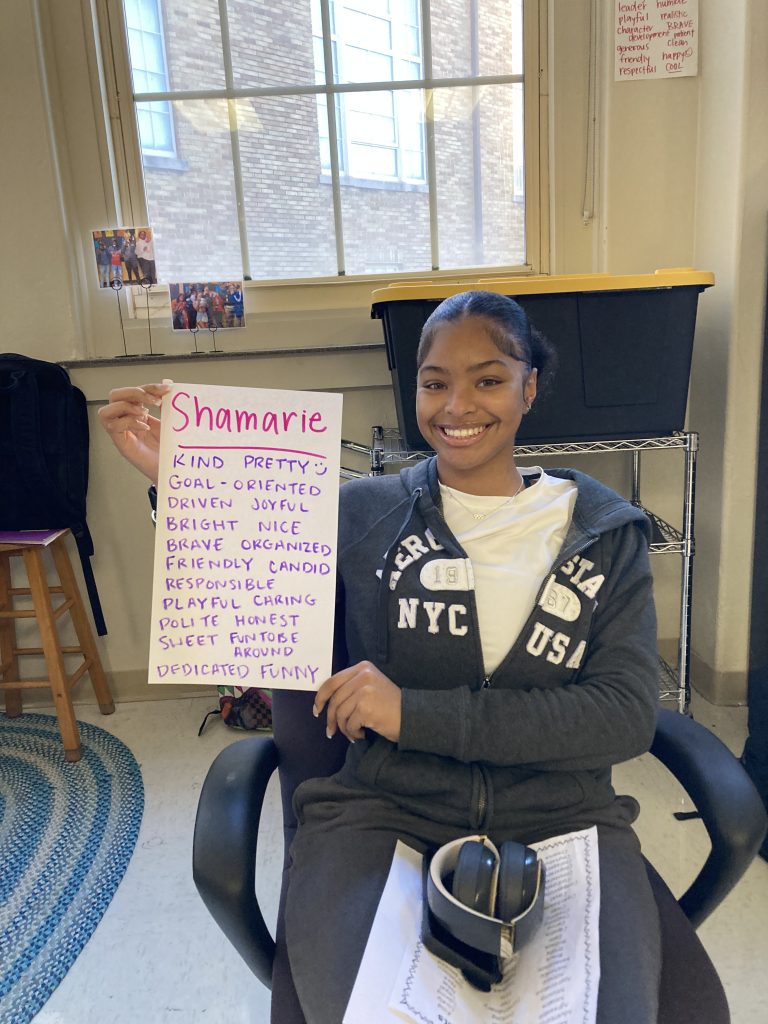 leader humble
playful realistic
character BRAVE
development patient
generous clean
friendly happy☺
respectful COOL
Shamarie
KIND PRETTY☺
GOAL-ORIENTED
DRIVEN JOYFUL
BRIGHT NICE
BRAVE ORGANIZED
FRIENDLY CANDID
RESPONSIBLE
PLAYFUL CARING
POLITE HONEST
SWEET FUN TO BE
AROUND
DEDICATED FUNNY
AERO STA
19 87
NYC USA